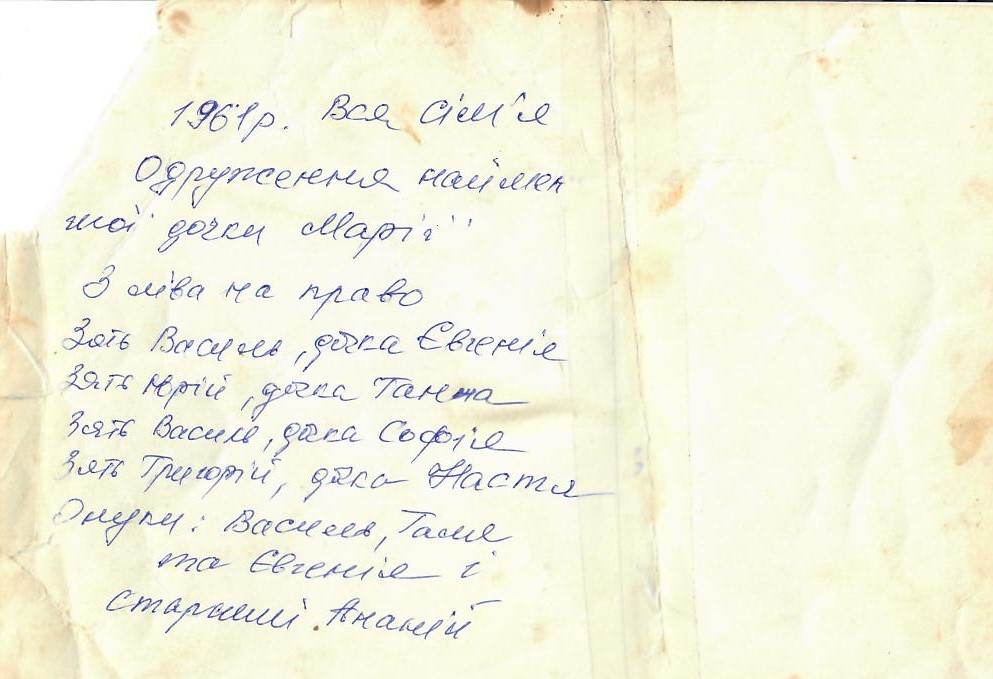 1961р. Вся сім'я
Одруження наймен
шої дочки Марії
З ліва на право
Зять Василь, дочка Євгенія
Зять Юрій, дочка Ганна
Зять Василь, дочка Софія
Зять Григорій, дочка Настя
Онуки: Василь, Галя
та Євгенія і
старший Ананій